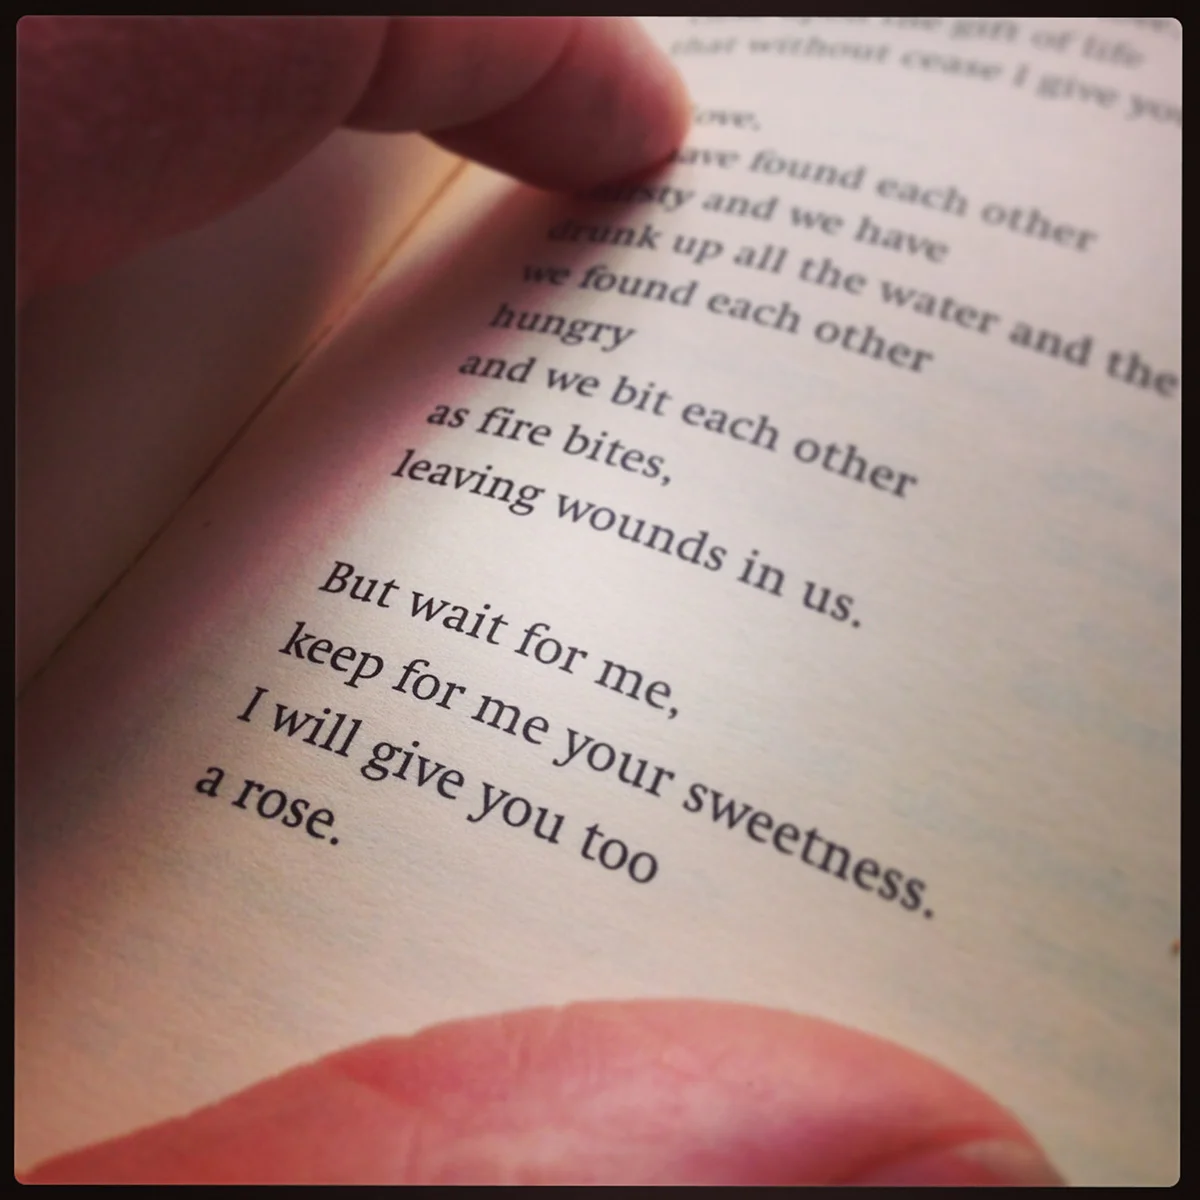 upon the gift of life
that without cease I give you
found each other
and we have
drunk up all the water and the
we found each other
hungry
and we bit each other
as fire bites,
leaving wounds in us.
But wait for me,
keep for me your sweetness.
I will give you too
a rose.